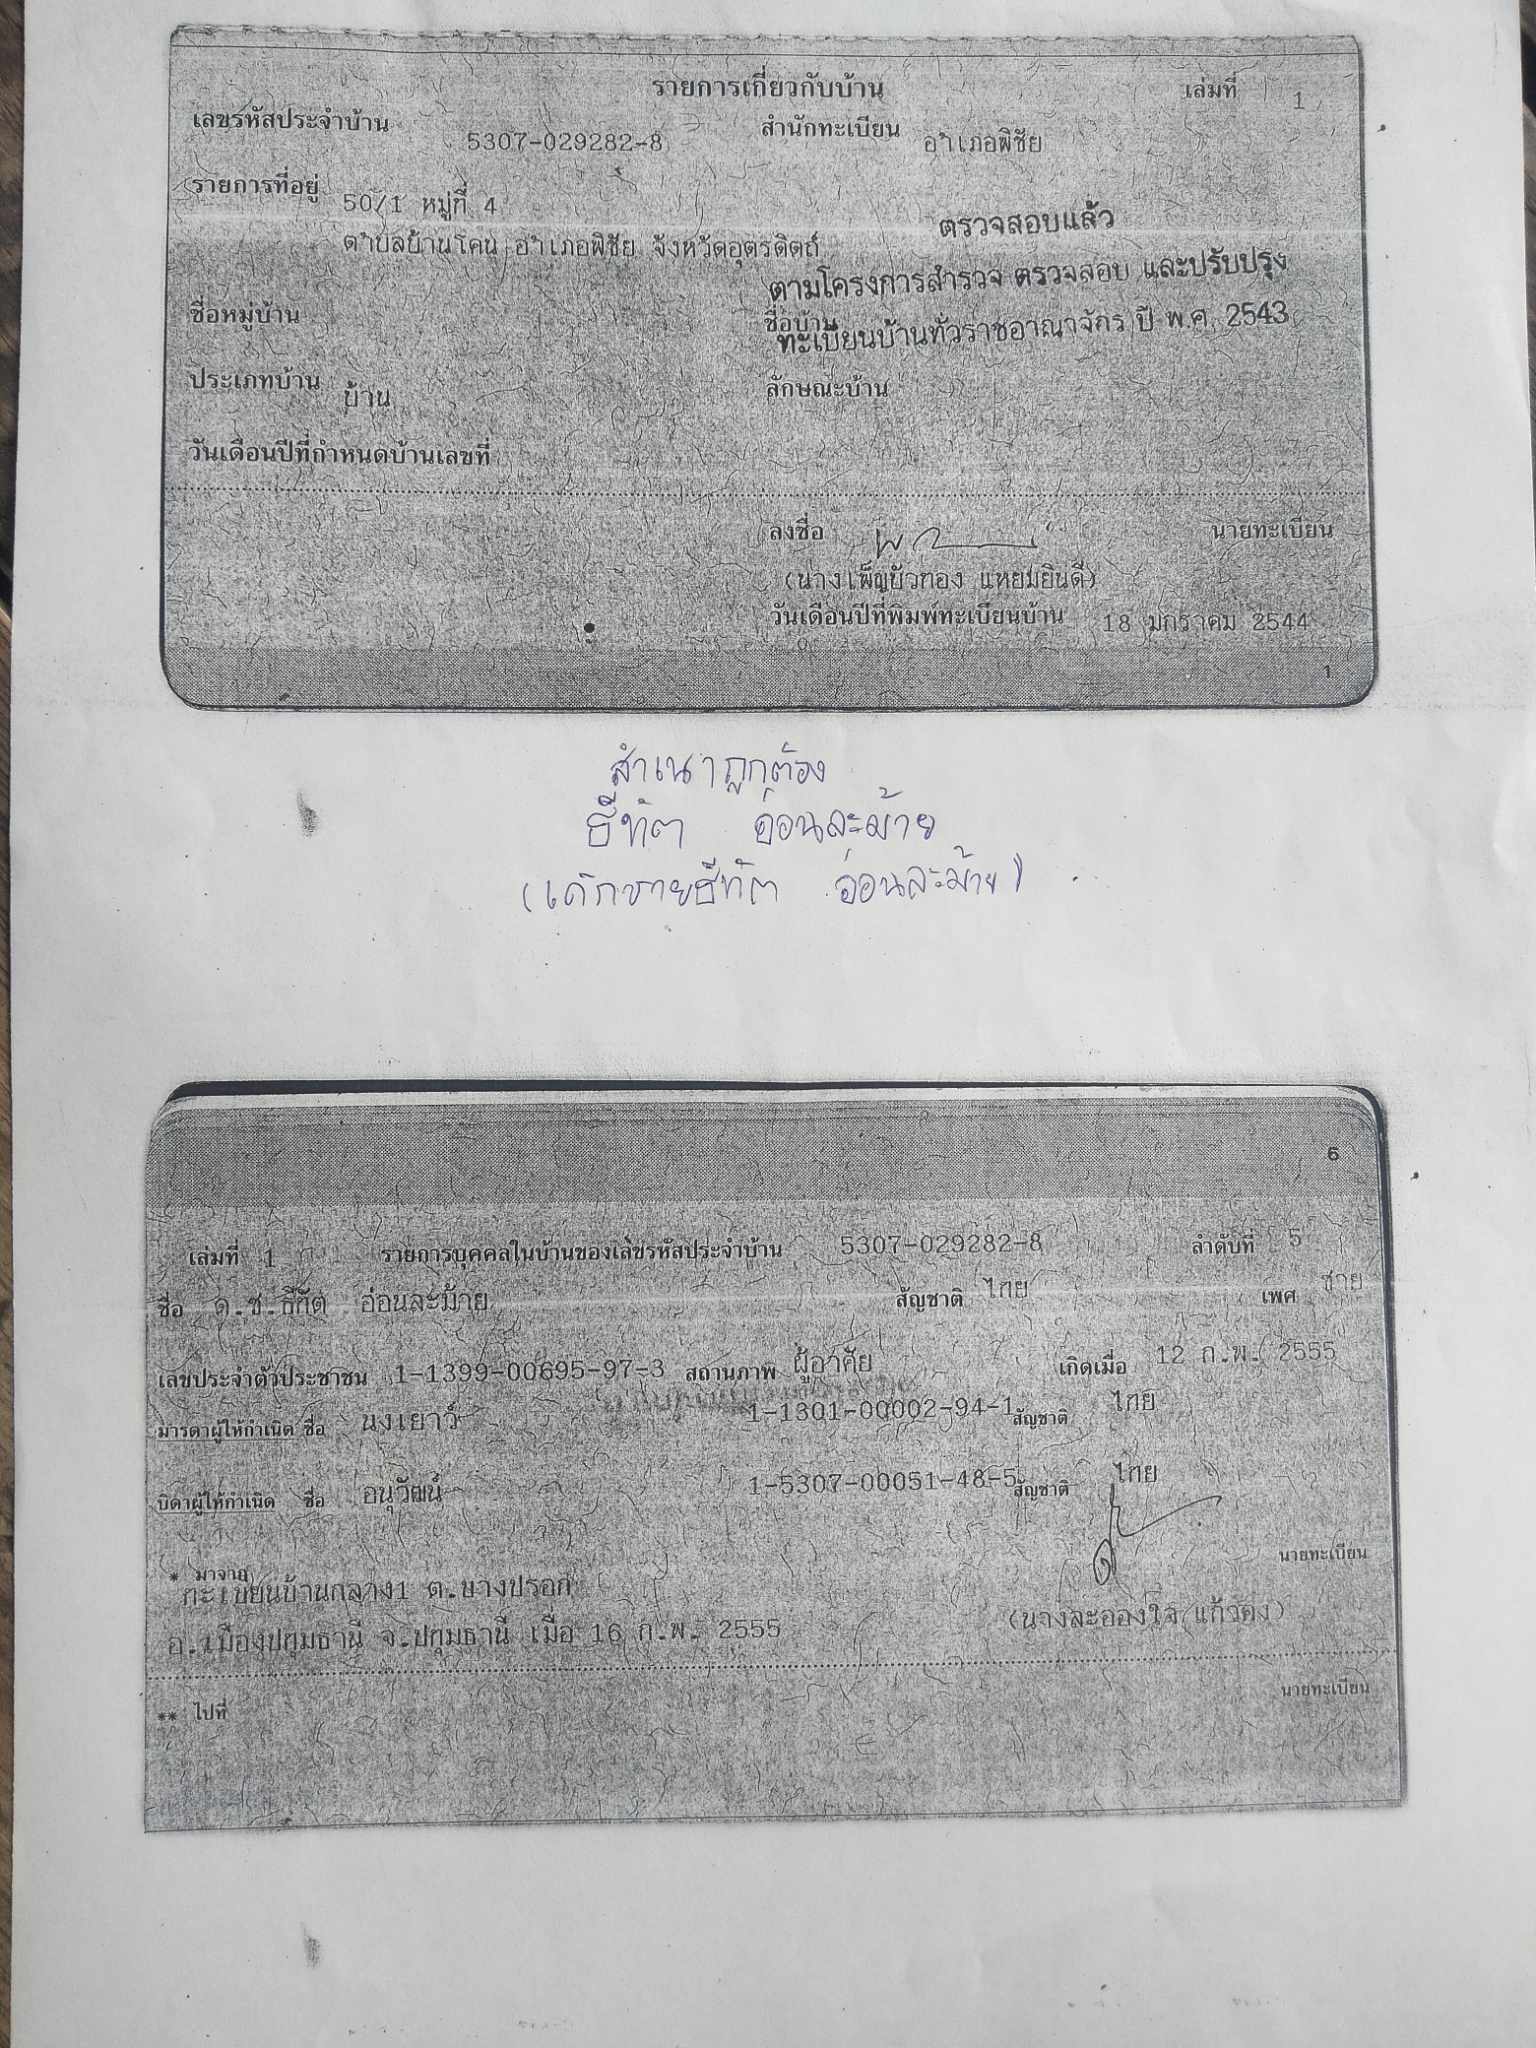 รายการเกี่ยวกับบ้าน เล่มที่ 1
เลขรหัสประจำบ้าน 5307-029282-8 สำนักทะเบียน อำเภอพิชัย
รายการที่อยู่ 50/1 หมู่ที่ 4
ตำบลบ้านโคน อำเภอพิชัย จังหวัดอุตรดิตถ์
ตรวจสอบแล้ว
ตามโครงการสำรวจ ตรวจสอบ และปรับปรุง
ทะเบียนบ้านทั่วราชอาณาจักร ปี พ.ศ. 2543
ชื่อหมู่บ้าน ชื่อบ้าน
ประเภทบ้าน บ้าน ลักษณะบ้าน
วันเดือนปีที่กำหนดบ้านเลขที่
ลงชื่อ นายทะเบียน
(นางเพ็ญบัวทอง แหยมยินดี)
วันเดือนปีที่พิมพ์ทะเบียนบ้าน 18 มกราคม 2544
1
สำเนาถูกต้อง
ธีทัต อ่อนละม้าย
(เด็กชายธีทัต อ่อนละม้าย)
6
เล่มที่ 1 รายการบุคคลในบ้านของเลขรหัสประจำบ้าน 5307-029282-8 ลำดับที่ 5
ชื่อ ด.ช.ธีทัต อ่อนละม้าย สัญชาติ ไทย เพศ ชาย
เลขประจำตัวประชาชน 1-1399-00695-97-3 สถานภาพ ผู้อาศัย เกิดเมื่อ 12 ก.พ. 2555
มารดาผู้ให้กำเนิด ชื่อ นงเยาว์ 1-1301-00002-94-1 สัญชาติ ไทย
บิดาผู้ให้กำเนิด ชื่อ อนุวัฒน์ 1-5307-00051-48-5 สัญชาติ ไทย
* มาจาก นายทะเบียน
ทะเบียนบ้านกลาง1 ต.บางปรอก
อ.เมืองปทุมธานี จ.ปทุมธานี เมื่อ 16 ก.พ. 2555 (นางละอองใจ แก้วคง)
** ไปที่ นายทะเบียน